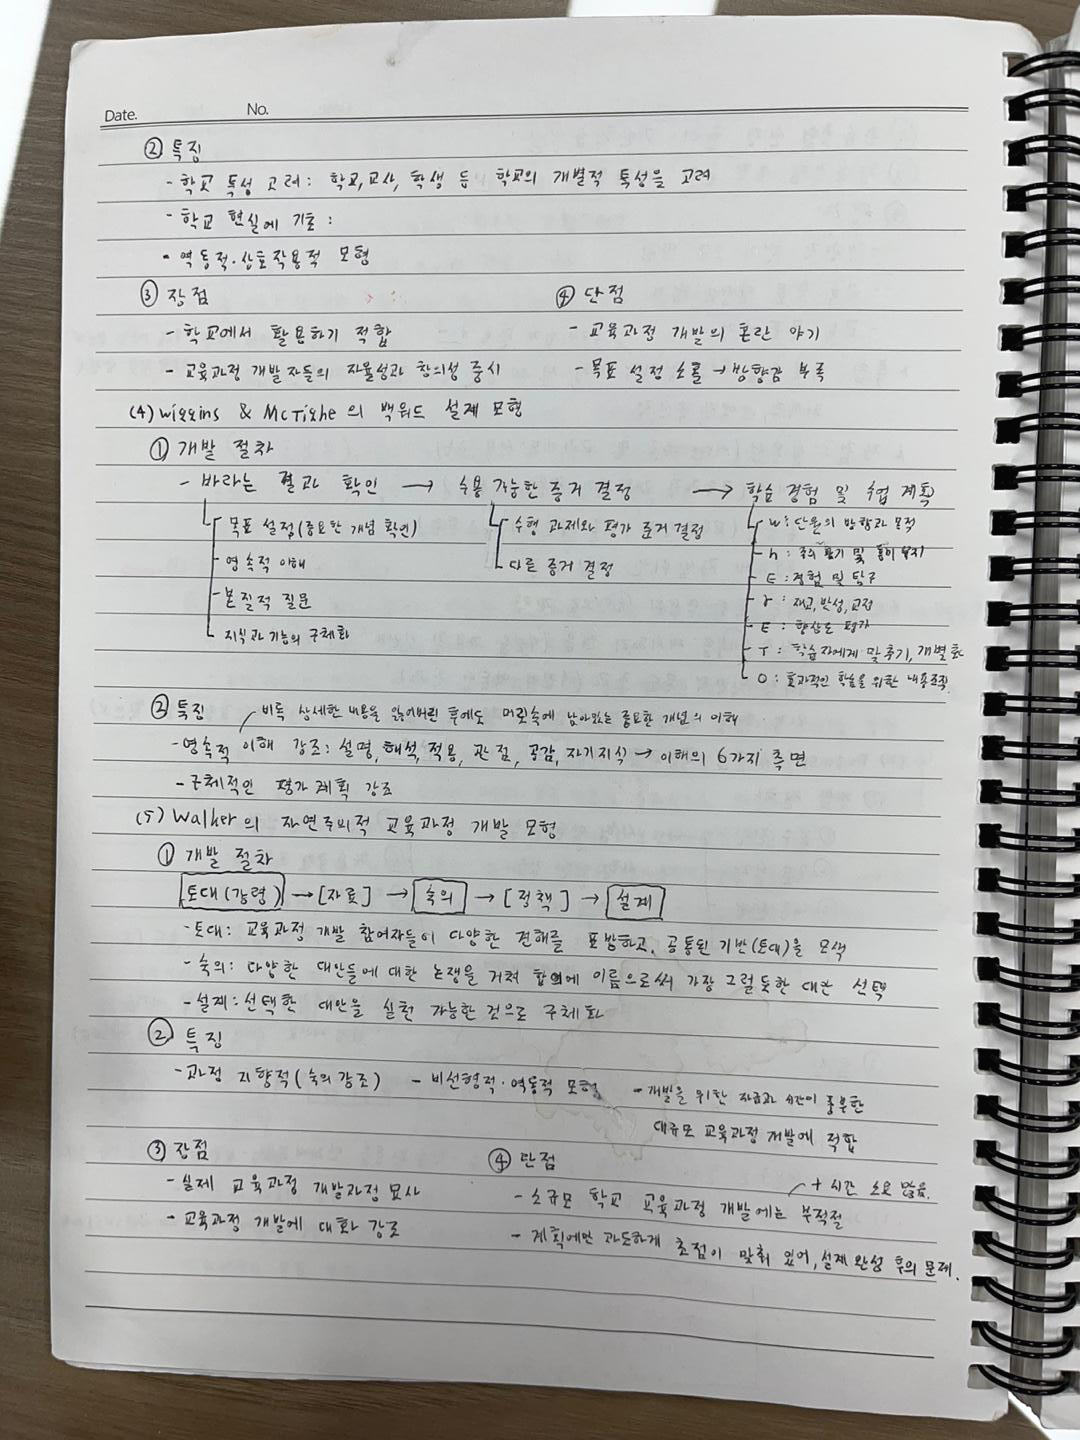 Date. No.
② 특징
- 학교 특성 고려 : 학교, 교사, 학생 등 학교의 개별적 특성을 고려
- 학교 현실에 기초 :
- 역동적·상호작용적 모형
③ 장점 ④ 단점
- 학교에서 활용하기 적합 - 교육과정 개발의 혼란 야기
- 교육과정 개발자들의 자율성과 창의성 중시 - 목표 설정 소홀 → 방향감 부족
(4) Wiggins & McTighe의 백워드 설계 모형
① 개발 절차
- 바라는 결과 확인 → 수용 가능한 증거 결정 → 학습 경험 및 수업 계획
목표 설정(중요한 개념 확인) 수행 과제와 평가 준거 결정 W : 단원의 방향과 목적
영속적 이해 다른 증거 결정 h : 주의 환기 및 흥미 유지
본질적 질문 E : 경험 및 탐구
지식과 기능의 구체화 r : 재고, 반성, 교정
E : 향상도 평가
T : 학습자에게 맞추기, 개별화
O : 효과적인 학습을 위한 내용조직
② 특징 비록 상세한 내용을 잃어버린 후에도 머릿속에 남아있는 중요한 개념의 이해
- 영속적 이해 강조 : 설명, 해석, 적용, 관점, 공감, 자기지식 → 이해의 6가지 측면
- 구체적인 평가 계획 강조
(5) Walker의 자연주의적 교육과정 개발 모형
① 개발 절차
토대(강령) → [자료] → 숙의 → [정책] → 설계
- 토대 : 교육과정 개발 참여자들이 다양한 견해를 표방하고, 공통된 기반(토대)을 모색
- 숙의 : 다양한 대안들에 대한 논쟁을 거쳐 합의에 이름으로써 가장 그럴듯한 대안 선택
- 설계 : 선택한 대안을 실천 가능한 것으로 구체화
② 특징
- 과정 지향적(숙의 강조) - 비선형적·역동적 모형 - 개발을 위한 자금과 시간이 풍부한
대규모 교육과정 개발에 적합
③ 장점 ④ 단점
- 실제 교육과정 개발과정 묘사 - 소규모 학교 교육과정 개발에는 부적절 + 시간 소요 많음.
- 교육과정 개발에 대화 강조 - 계획에만 과도하게 초점이 맞춰 있어, 설계 완성 후의 문제.